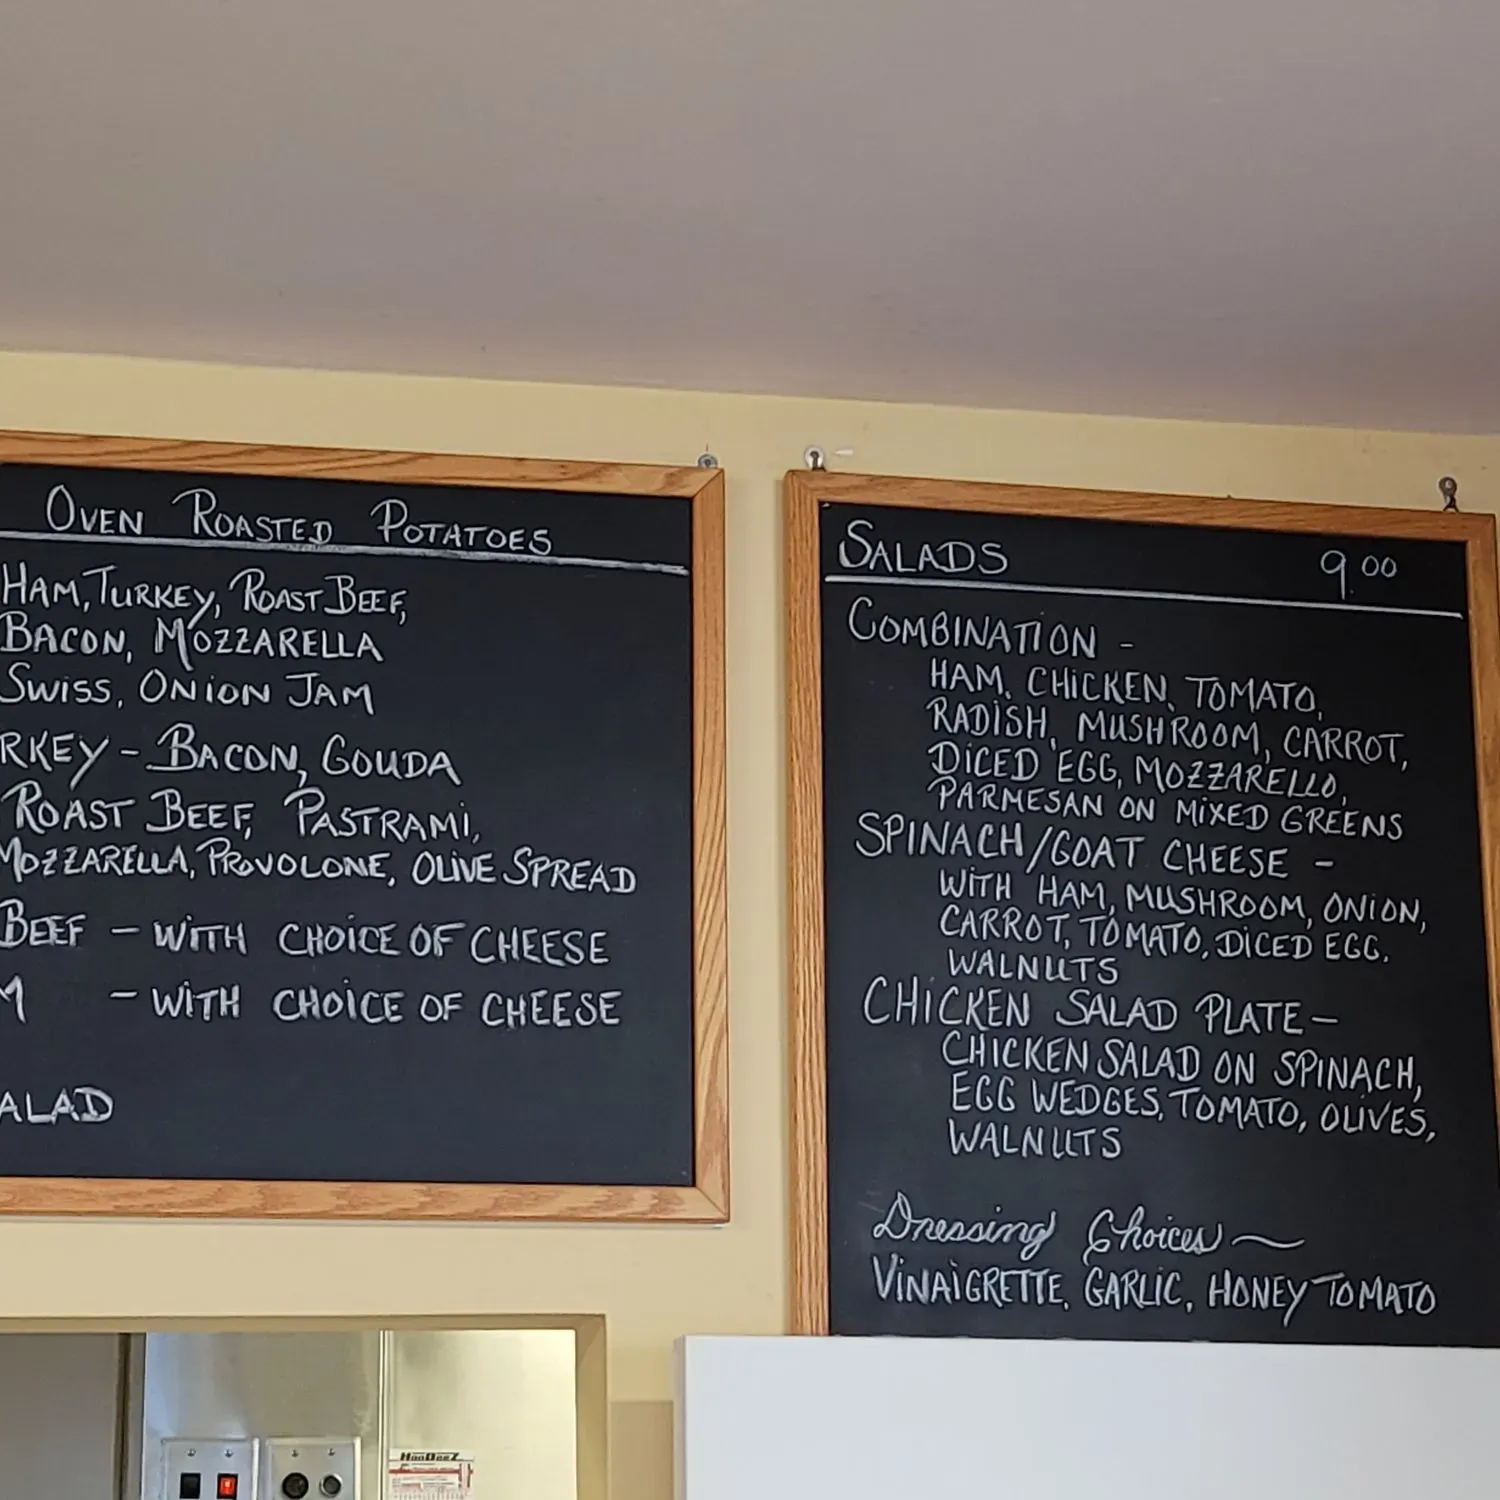 OVEN ROASTED POTATOES
HAM, TURKEY, ROAST BEEF,
BACON, MOZZARELLA
SWISS, ONION JAM
RKEY - BACON, GOUDA
ROAST BEEF, PASTRAMI,
MOZZARELLA, PROVOLONE, OLIVE SPREAD
BEEF - WITH CHOICE OF CHEESE
M - WITH CHOICE OF CHEESE
ALAD
SALADS 9.00
COMBINATION -
HAM, CHICKEN, TOMATO,
RADISH, MUSHROOM, CARROT,
DICED EGG, MOZZARELLO,
PARMESAN ON MIXED GREENS
SPINACH/GOAT CHEESE -
WITH HAM, MUSHROOM, ONION,
CARROT, TOMATO, DICED EGG.
WALNUTS
CHICKEN SALAD PLATE -
CHICKEN SALAD ON SPINACH,
EGG WEDGES, TOMATO, OLIVES,
WALNUTS
Dressing Choices ~
VINAIGRETTE, GARLIC, HONEY TOMATO